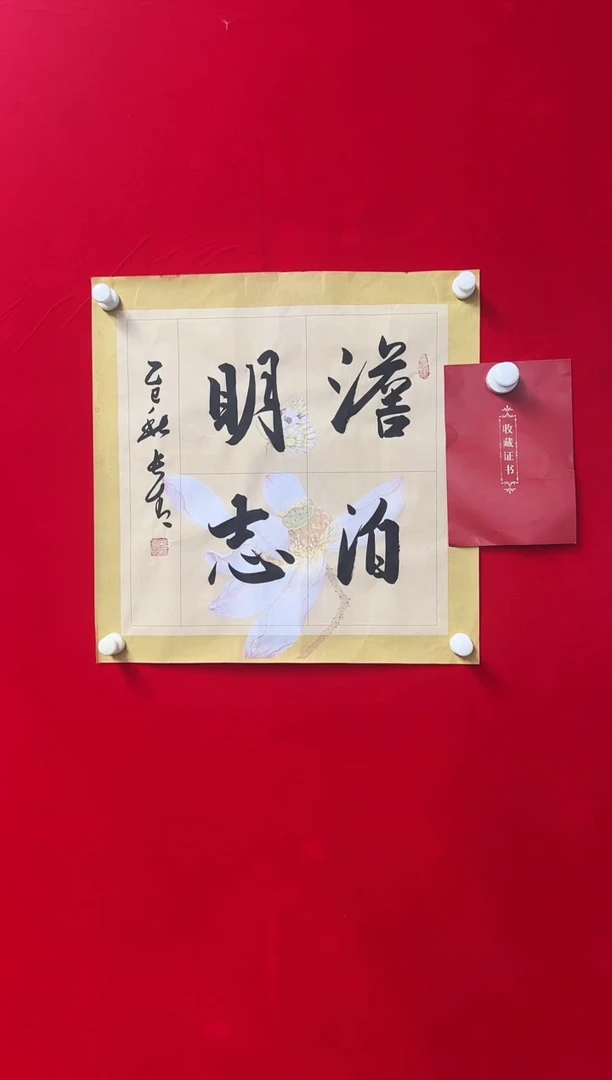 澹泊
明志
乙巳秋长青
收藏证书